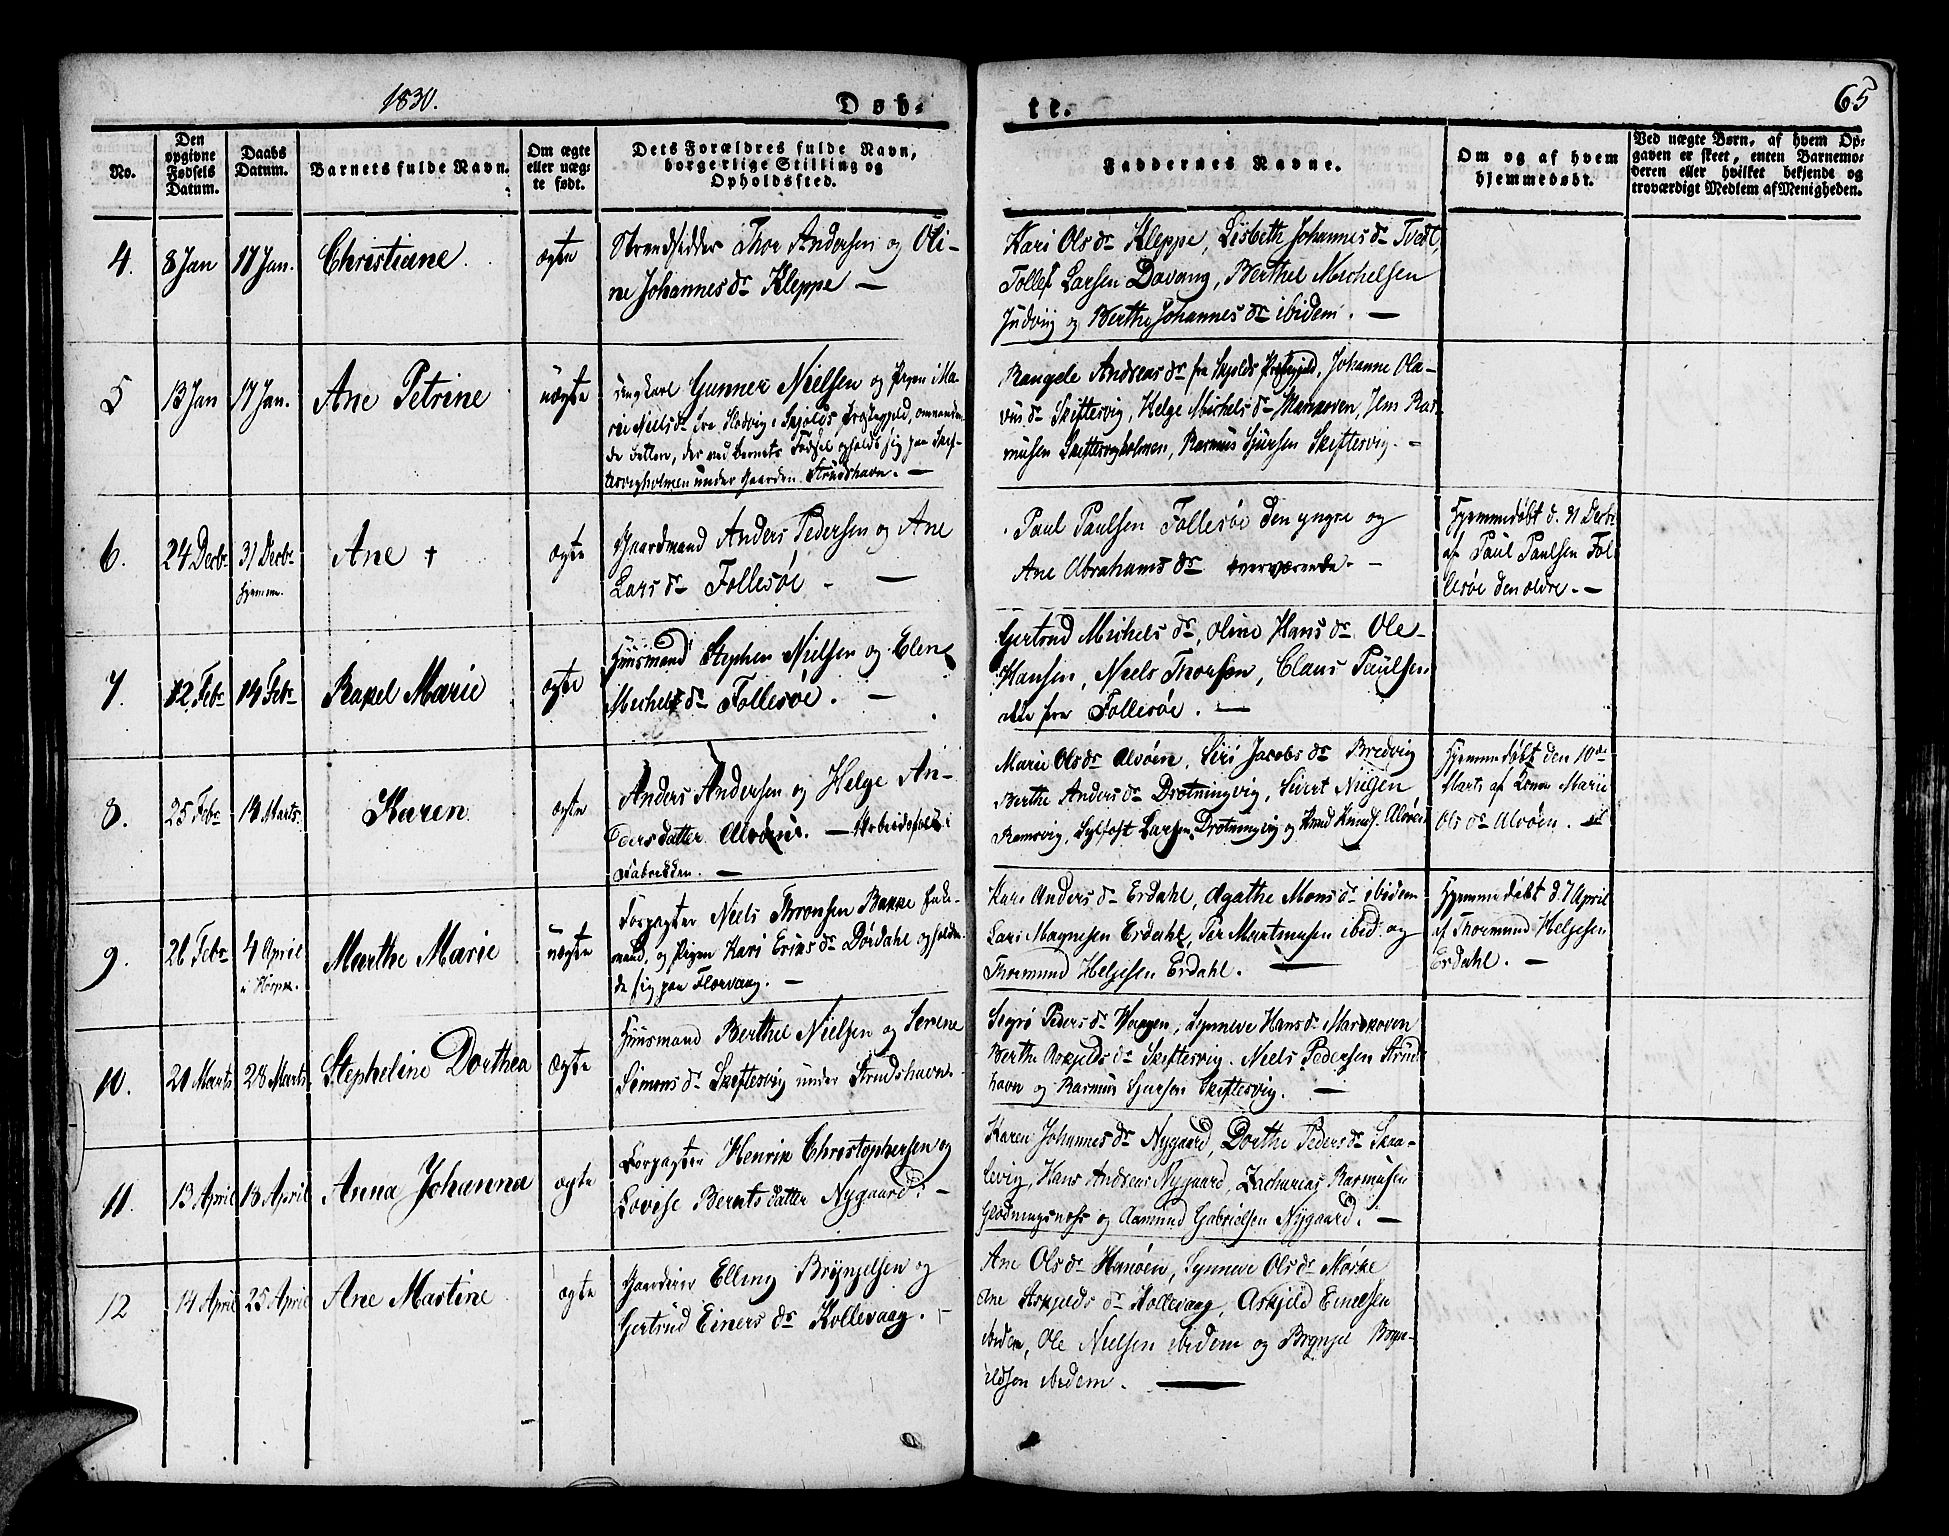 1830.
Døb-
te.
65
No.
Den opgivne Fødsels Datum.
Daabs Datum.
Barnets fulde Navn.
Om ægte eller uægte født.
Dets Forældres fulde Navn, borgerlige Stilling og Opholdssted.
Faddernes Navne.
Om og af hvem hjemmedøbt.
Ved uægte Børn, af hvem Opgaven er skeet, enten Barnemoderen eller hvilket bekjendt og troværdigt Medlem af Menigheden.
4. 8 Jan 17 Jan. Christiane ægte
Strandsidder Thor Andersen og Oli-
ne Johannesdr Kleppe —
Kari Olsdr Kleppe, Lisbeth Johannesdr Tvedt,
Tollef Larsen Davang, Berthel Michelsen
Judviig og Berthe Johannesdr ibidem. —
5 13 Jan 17 Jan. Ane Petrine uægte
Ungkarl Gunner Nielsen og Pigen Ma-
rie Nielsdr fra Hodvig i Skjolds Præstegjeld, omvanken-
de Betlere, der ved Barnets Fødsel opholdt sig paa Skif-
tesvigholmen under Gaarden Strudshavn. —
Rangele Andreasdr fra Skjolds Præstegjeld, Johanne Ola-
viisdr Skiftesvig, Helge Michelsdr Marøoven, Jens Ras-
musen Skiftesvigholmen, Rasmus Sjursen Skiftesvig. —
6. 24 Decbr 31 Decbr hjemme. Ane + ægte
Gaardmand Anders Pedersen og Ane
Larsdr Follesøe. —
Paul Paulsen Follesøe den yngre og
Ane Abrahamsdr overværende. —
Hjemmedøbt d. 31 Decbr
af Paul Paulsen Fol-
lesøe den ældre. —
7. 12 Febr 14 Febr Raxel Marie ægte
Huusmand Stephen Nielsen og Elen
Michelsdr Follesøe. —
Gertrud Michelsdr, Oline Hansdr Ole
Hansen, Niels Thorsen, Claus Paulsen
alle fra Follesøe. —
8. 25 Febr 14 Marts. Karen ægte
Anders Andersen og Helge An-
dersdatter Alvøens. — Arbeidsfolk i
Fabrikken. —
Marie Olsdr Alvøen, Siri Jacobsdr Bredvig
Berthe Andersdr Drotningvig, Sivert Nilsen
Ramsvig, Sylfest Larsen Drotningvig og Knud Knuds. Alvøen
Hjemmedøbt den 10de
Marts af Kone Marie
Olsdr Alvøen. —
9. 26 Febr 4 April i Kirke. Marthe Marie uægte
Forpagter Niels Thronsen Bakke Enke-
mand, og Pigen Kari Eriksdr Dørdahl opholden-
de sig paa Florvaag. —
Kari Andersdr Erdahl, Agathe Monsdr ibidem
Lars Magnesen Erdahl, Per Martmusen ibid. og
Thormund Helgesen Erdahl. —
Hjemmedøbt d 7 April
af Thormund Helgesen
Erdahl. —
10. 20 Marts 28 Marts. Stepheline Dorthea ægte
Huusmand Berthel Nielsen og Serene
Simonsdr Skiftesvig under Strudshavn.
Sigrø Pedersdr Vaagen, Synneve Hansdr Marøoven
Berthe Roxjeldsdr Skiftesvig. Niels Pedersen Strud-
havn og Rasmus Sjursen Skiftesvig. —
11. 13 April 18 April Anna Johanna ægte
Forpagter Henrik Christophersen og
Lovise Berntsdatter Nygaard. —
Karen Johannesdr Nygaard, Dorthe Pedersdr Skaa-
levig, Hans Andreas Nygaard, Zacharias Rasmusen
Gladningsnæss og Aamund Gabrielsen Nygaard. —
12 14 April 25 April Ane Martine ægte
Gaardeier Elling Brynjelsen og
Gertrud Einersdr Kollevaag. —
Ane Olsdr Hanøen, Synneve Olsdr Møske
Ane Askjeldsdr Kollevaag, Askjeld Einersen
ibidem, Ole Nielsen ibidem og Brynjel Bryn-
ildsen ibidem. —